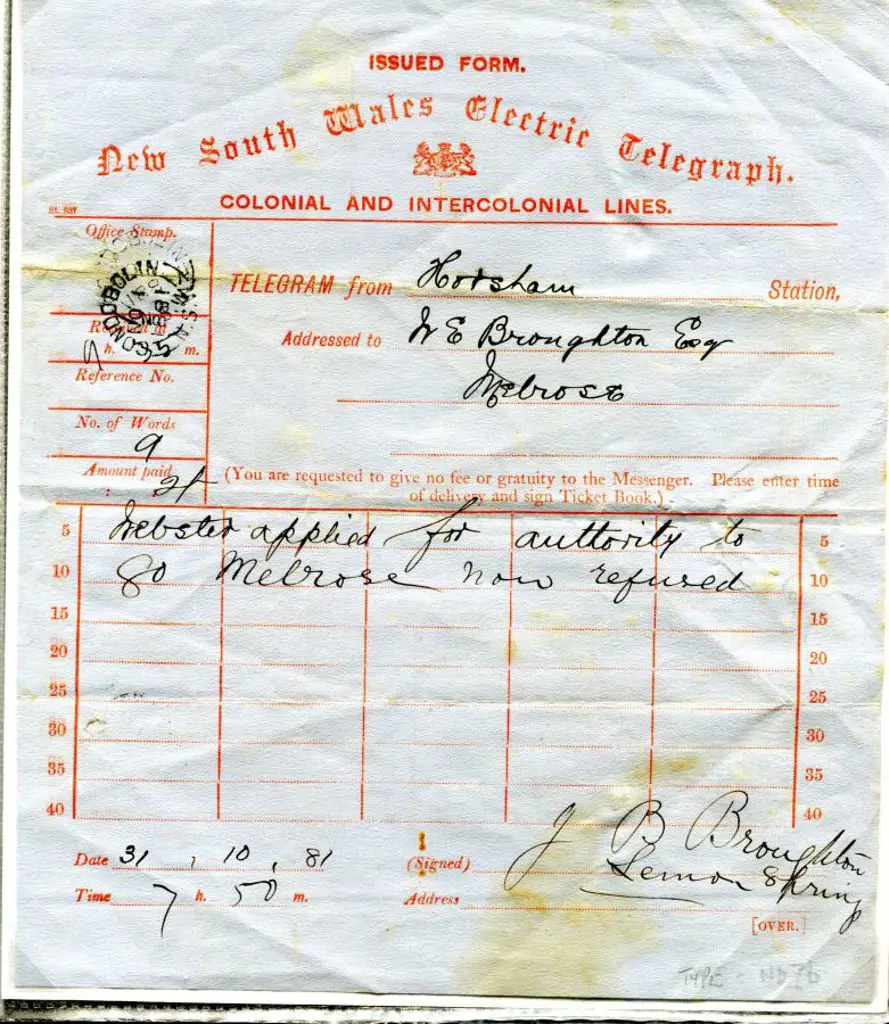 ISSUED FORM.
New South Wales Electric Telegraph.
COLONIAL AND INTERCOLONIAL LINES.
Office Stamp.
CONDOBOLIN N.S.W
TELEGRAM from Horsham Station,
Addressed to W E Broughton Esq
Melrose
h. 35 m.
9
Reference No.
No. of Words
9
Amount paid
2/
(You are requested to give no fee or gratuity to the Messenger. Please enter time
of delivery and sign Ticket Book.)
5 Webster applied for auttority to 5
10 go Melrose now refused 10
15 15
20 20
25 25
30 30
35 35
40 40
J B Broughton
Date 31 , 10 , 81 (Signed)
Lemon Spring
Time 7 h. 50 m. Address
[OVER.]
TYPE - ND7b